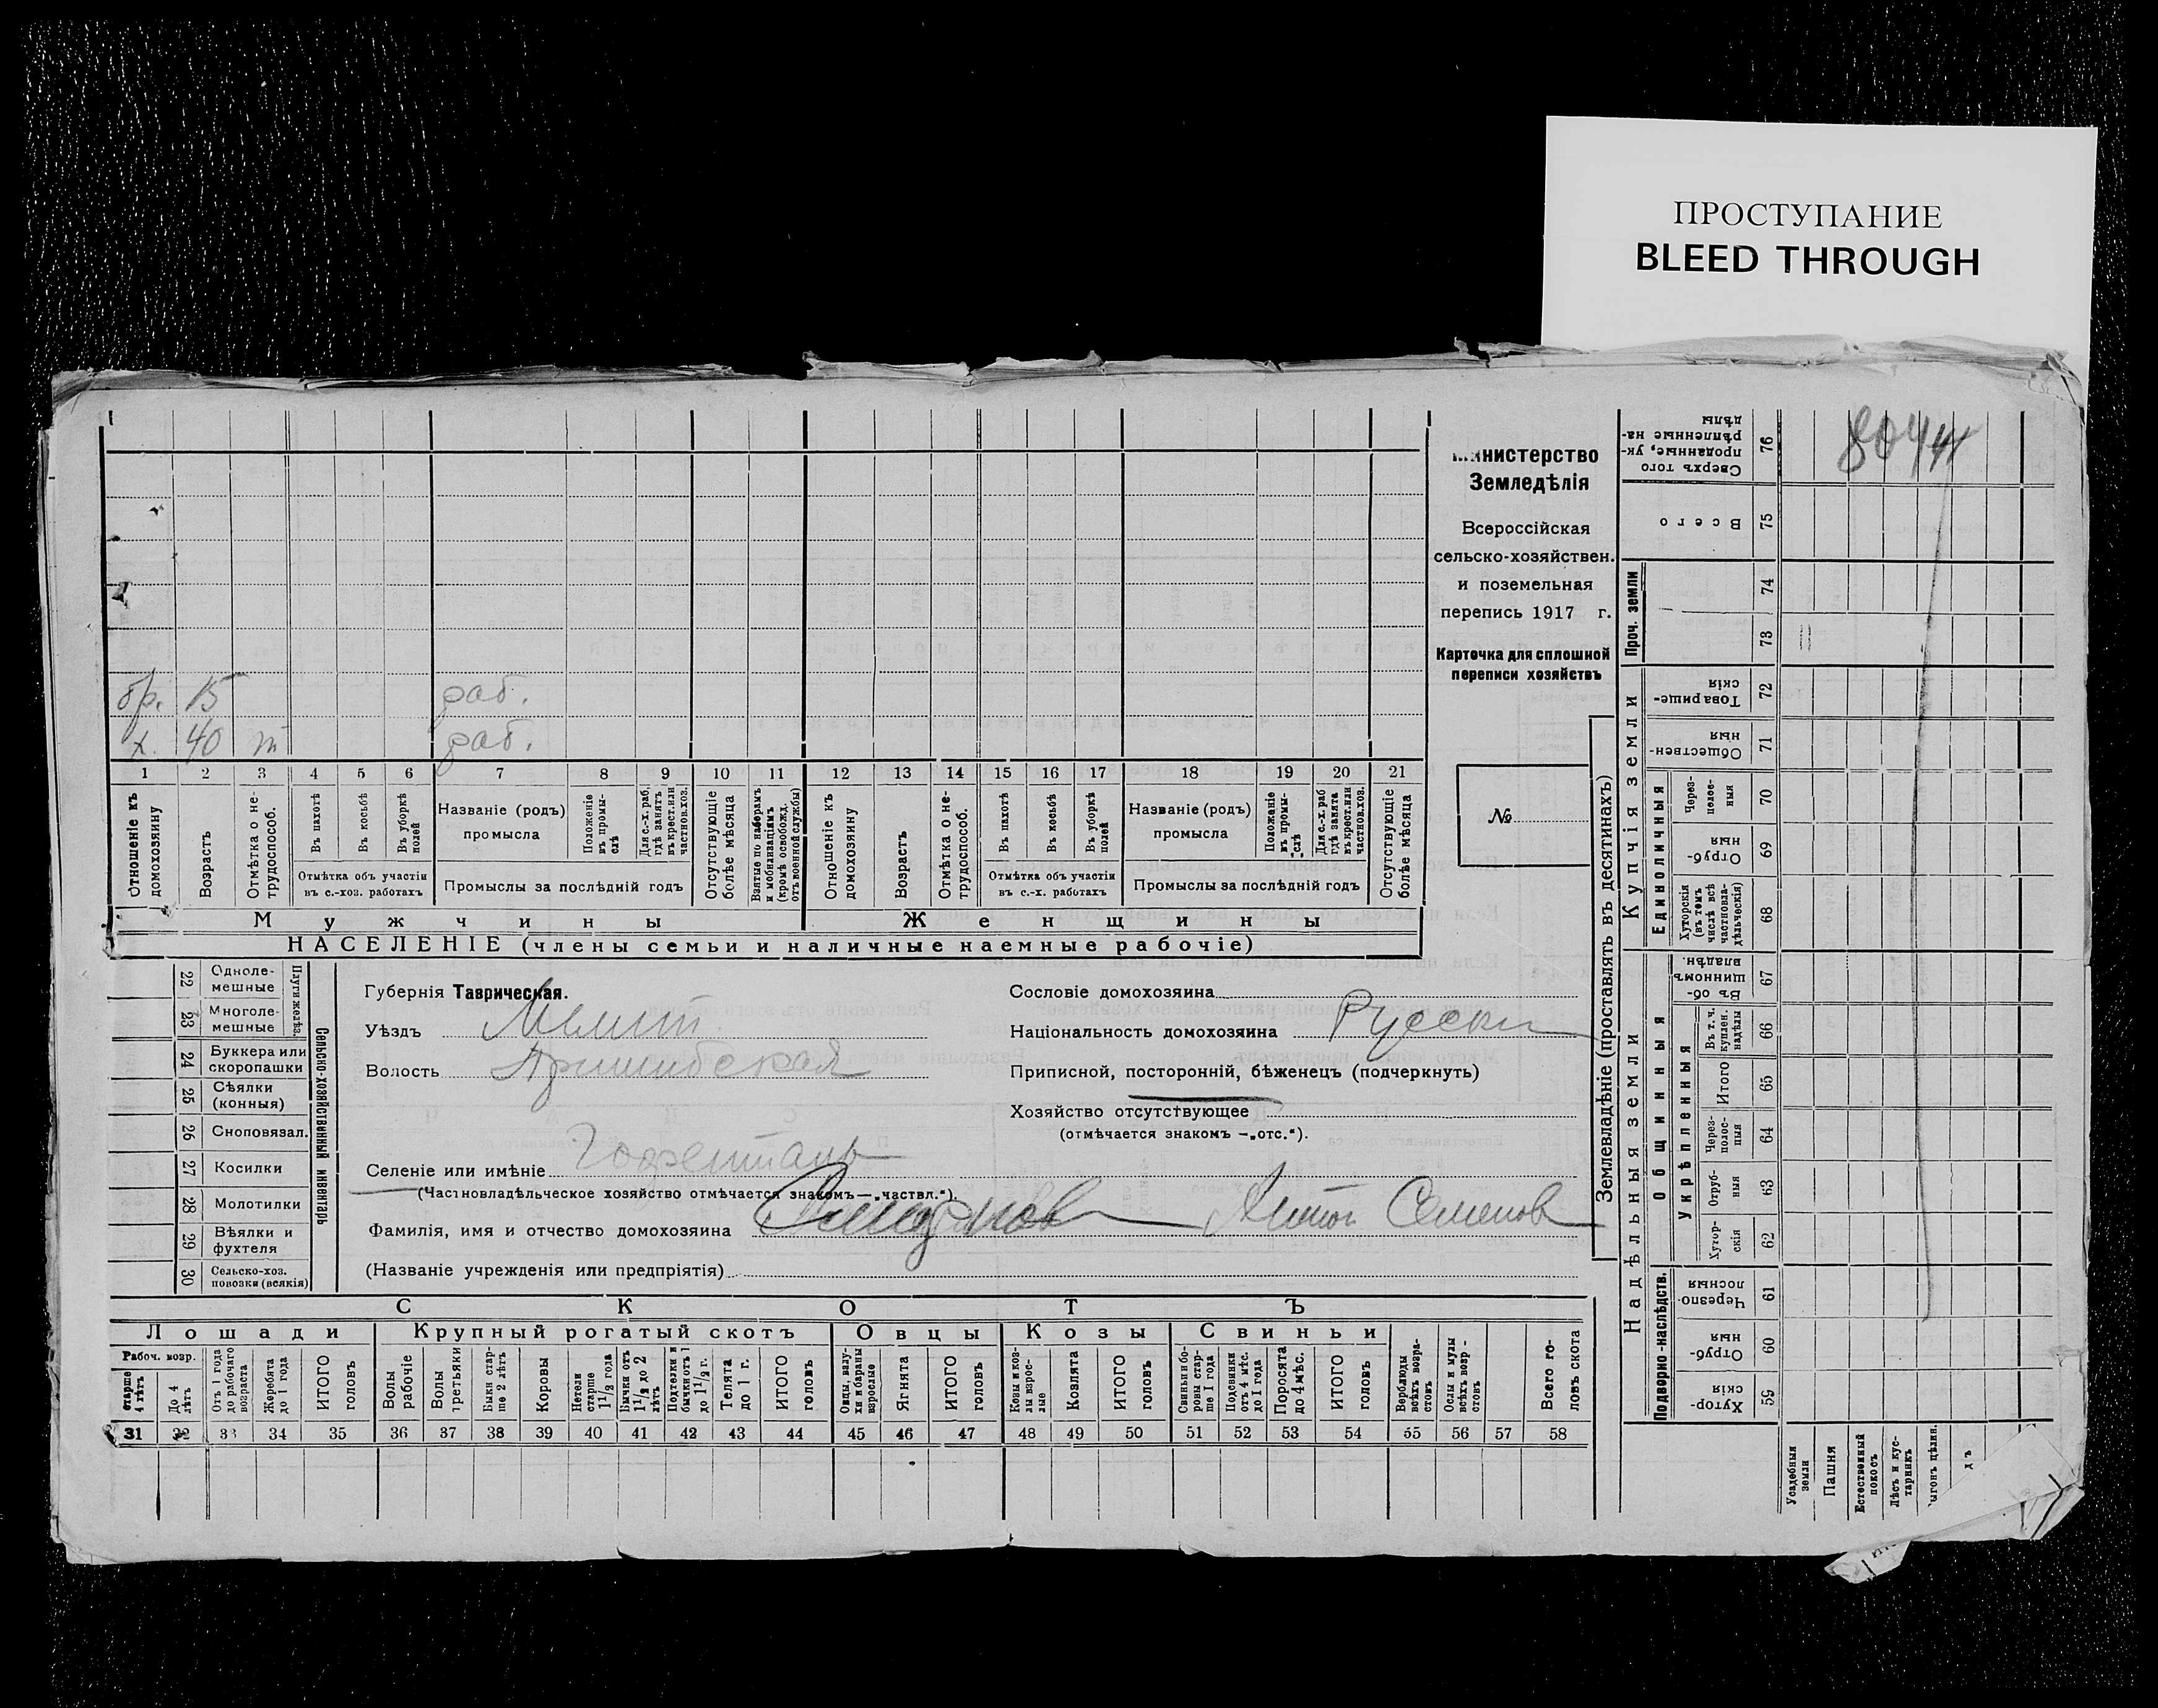 ПРОСТУПАНИЕ
BLEED THROUGH
8044
Министерство
Земледѣлія
Всероссійская
сельско-хозяйствен.
и поземельная
перепись 1917 г.
Карточка для сплошной
переписи хозяйствъ
№
бр. 15 раб.
х. 40 т раб.
1 2 3 4 5 6 7 8 9 10 11 12 13 14 15 16 17 18 19 20 21
Отношеніе къ домохозяину
Возрастъ
Отмѣтка о не-трудоспособ.
Въ пахотѣ
Въ косьбѣ
Въ уборкѣ полей
Отмѣтка объ участіи
въ с.-хоз. работахъ
Названіе (родъ)
промысла
Положеніе въ промы-слѣ
Для с.-х. раб. гдѣ занятъ въ крест. или частновл. хоз.
Промыслы за послѣдній годъ
Отсутствующіе болѣе мѣсяца
Взятые по наборамъ и мобилизаціямъ (кромѣ освобожд. отъ военной службы)
Отношеніе къ домохозяину
Возрастъ
Отмѣтка о не-трудоспособ.
Въ пахотѣ
Въ косьбѣ
Въ уборкѣ полей
Отмѣтка объ участіи
въ с.-х. работахъ
Названіе (родъ)
промысла
Положеніе въ промы-слѣ
Для с.-х. раб гдѣ занята въ крест. или частнов. хоз.
Промыслы за послѣдній годъ
Отсутствующіе болѣе мѣсяца
Мужчины Женщины
НАСЕЛЕНІЕ (члены семьи и наличные наемные рабочіе)
22 Одноле-мешные
23 Многоле-мешные
Плуги желѣз.
24 Буккера или скоропашки
25 Сѣялки (конныя)
26 Сноповязал.
27 Косилки
28 Молотилки
29 Вѣялки и фухтеля
30 Сельско-хоз. повозки (всякія)
Сельско-хозяйственный инвентарь
Губернія Таврическая.
Уѣздъ Мелит
Волость Пришибская
Селеніе или имѣніе
(Частновладѣльческое хозяйство отмѣчается знакомъ—„частвл.“).
Фамилія, имя и отчество домохозяина Антон Семенов
(Названіе учрежденія или предпріятія)
Сословіе домохозяина
Національность домохозяина Русски
Приписной, посторонній, бѣженецъ (подчеркнуть)
Хозяйство отсутствующее
(отмѣчается знакомъ —„отс.“).
СКОТЪ
Лошади Крупный рогатый скотъ Овцы Козы Свиньи
Рабоч. возр.
старше 4 лѣтъ
До 4 лѣтъ
Отъ 1 года до рабочаго возраста
Жеребята до 1 года
ИТОГО головъ
Волы рабочіе
Волы третьяки
Быки стар-ше 2 лѣтъ
Коровы
Нетели старше 1½ года
Бычки отъ 1½ до 2 лѣтъ
Подтелки и бычки отъ 1 до 1½ г.
Телята до 1 г.
ИТОГО головъ
Овцы, валу-хи и бараны взрослые
Ягнята
ИТОГО головъ
Козы и коз-лы взрос-лые
Козлята
ИТОГО головъ
Свиньи и бо-ровы стар-ше 1 года
Подсвинки отъ 4 мѣс. до 1 года
Поросята до 4 мѣс.
ИТОГО головъ
Верблюды всѣхъ возра-стовъ
Ослы и мулы всѣхъ возр-стовъ
Всего го-ловъ скота
31 32 33 34 35 36 37 38 39 40 41 42 43 44 45 46 47 48 49 50 51 52 53 54 55 56 57 58
Землевладѣніе (проставлять въ десятинахъ)
Надѣльныя земли
Купчія земли
Проч. земли
Подворно-наслѣдств.
Общинныя
Укрѣпленныя
Единоличныя
76 Сверхъ того проданные, ук-рѣпленные на-дѣлы
75 Всего
74
73
72 Товарище-скія
71 Обществен-ныя
70 Через-полос-ныя
69 Отруб-ныя
68 Хуторскія (въ томъ числѣ всѣ частновла-дѣльческія)
67 Въ об-щинномъ владѣн.
66 Въ т. ч. куплен. надѣлы
65 Итого
64 Через-полос-ныя
63 Отруб-ныя
62 Хутор-скія
61 Черезпо-лосныя
60 Отруб-ныя
59 Хутор-скія
Усадебныя земли
Пашня
Естественный покосъ
Лѣсъ и кус-тарникъ